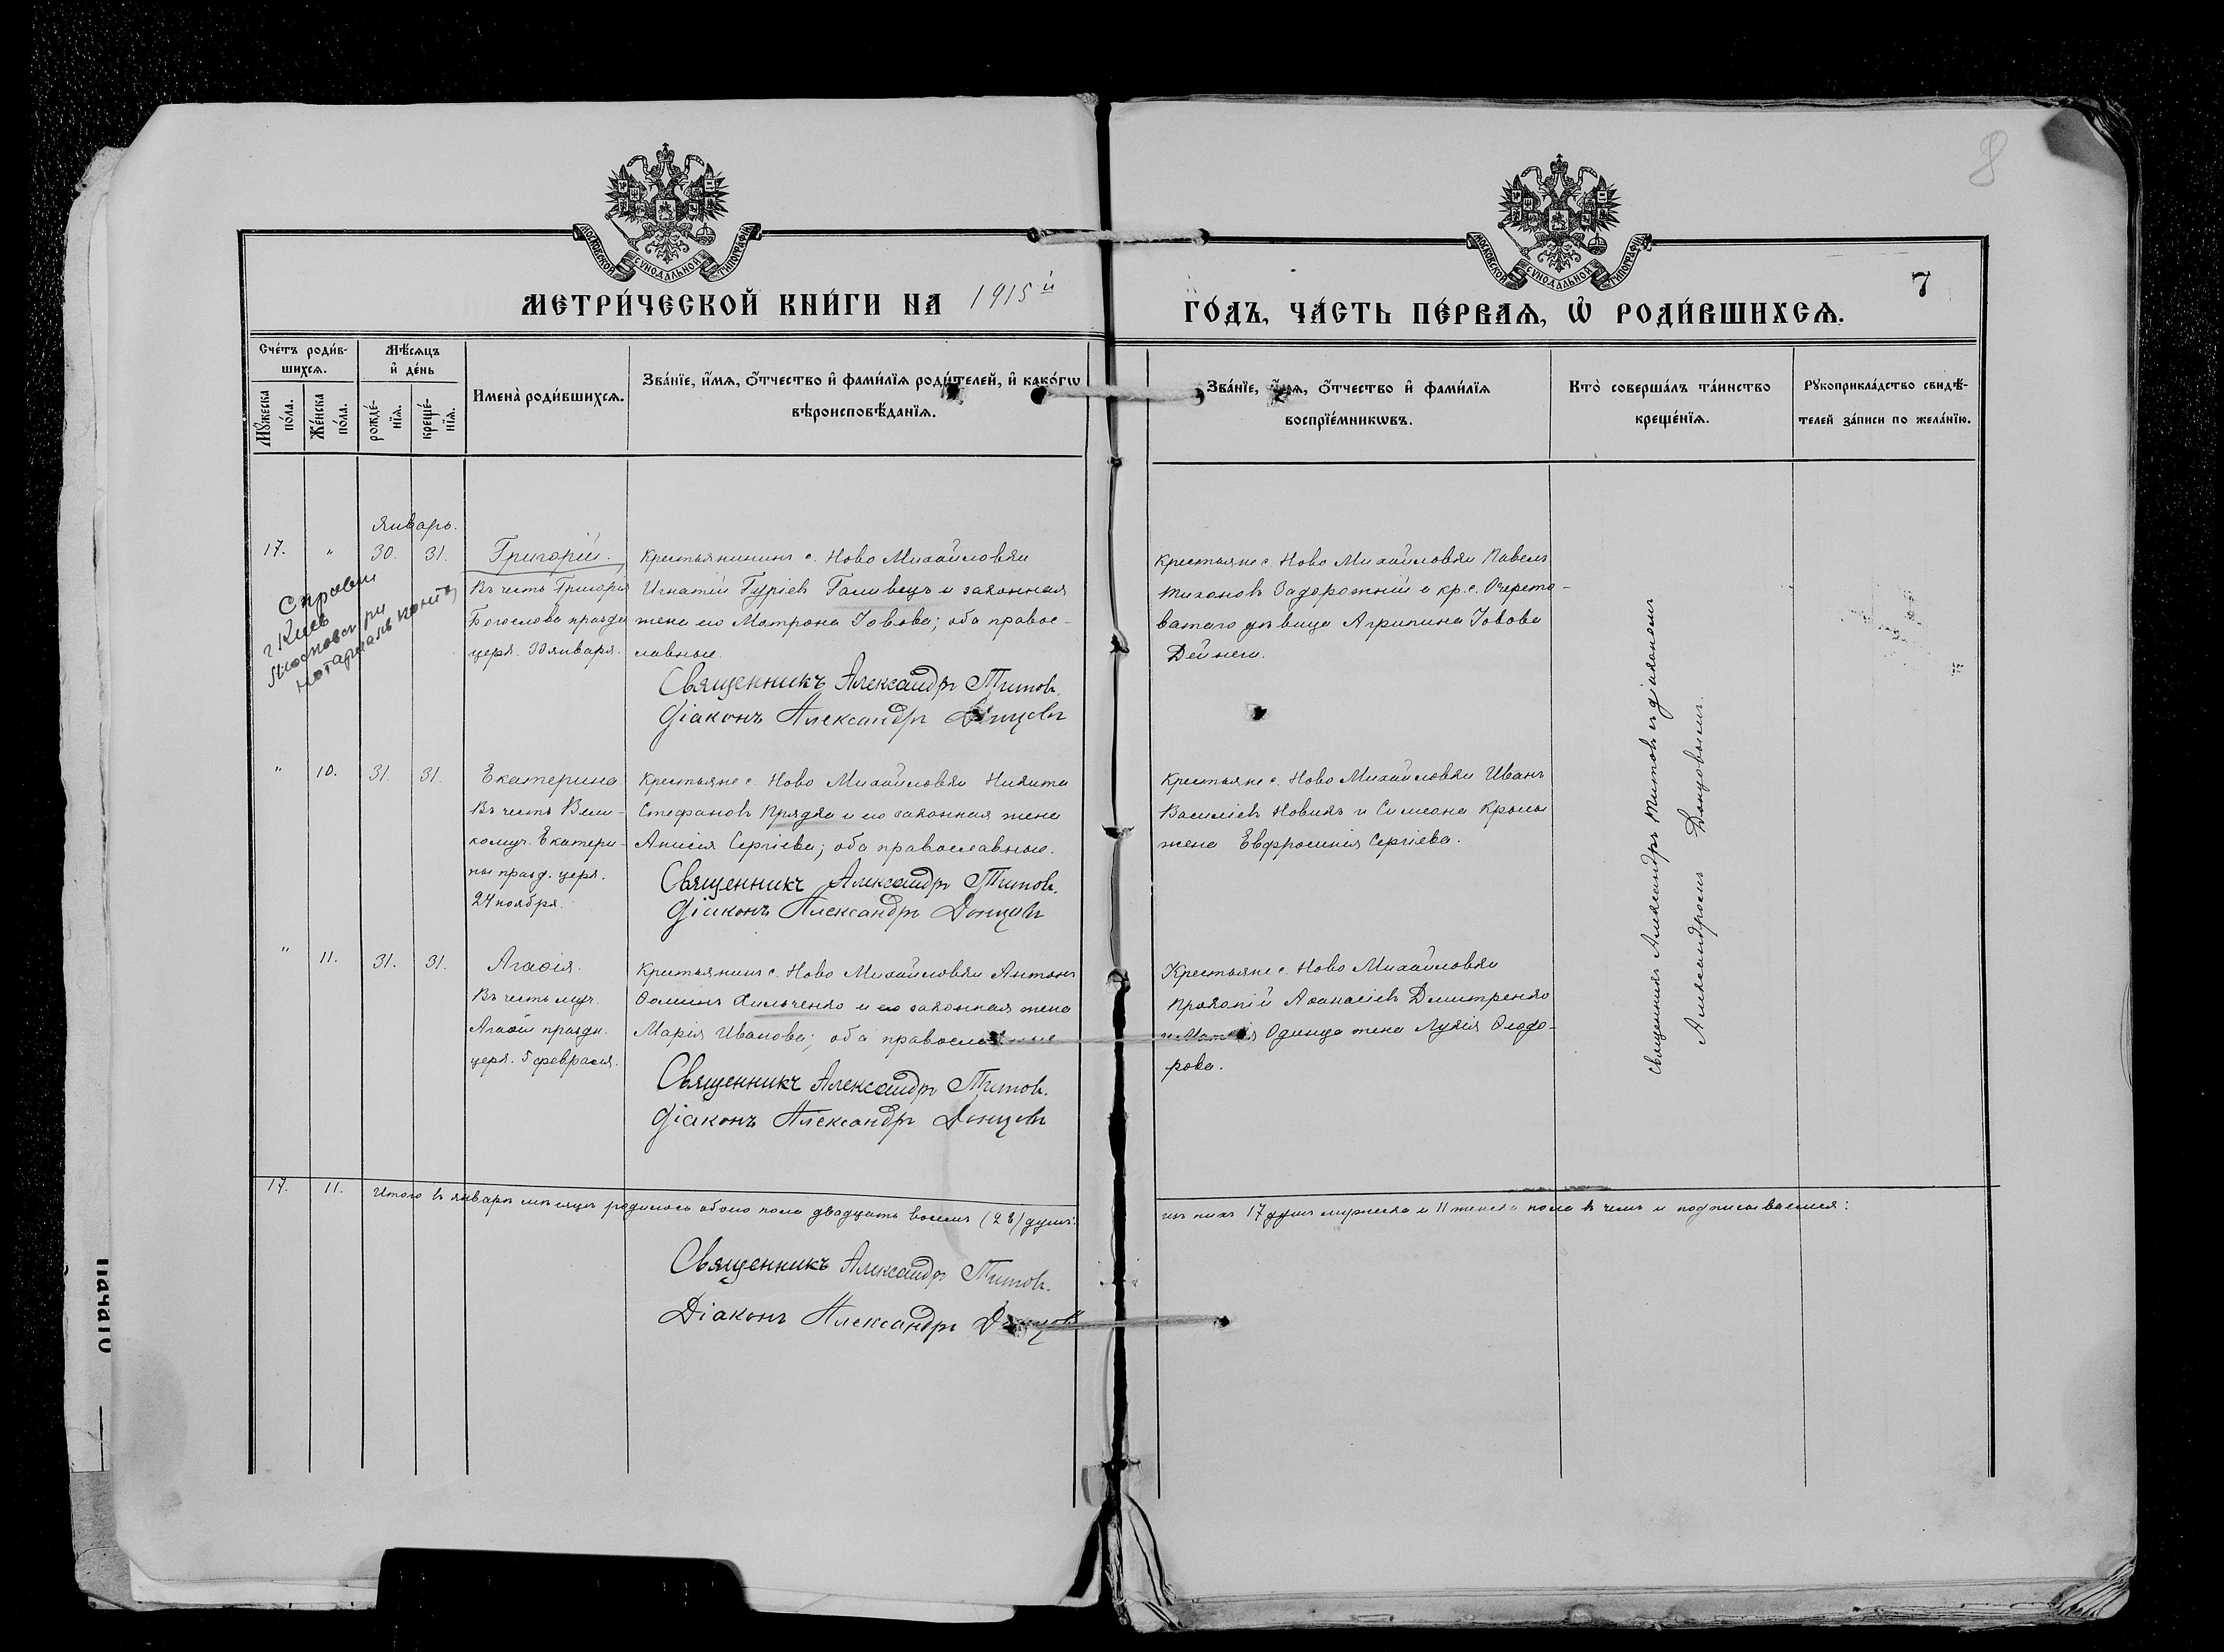 8
МОСКОВСКОЙ СУНОДАЛЬНОЙ ТИПОГРАФІИ
МОСКОВСКОЙ СУНОДАЛЬНОЙ ТИПОГРАФІИ
7
МЕТРИ́ЧЕСКОЙ КНИ́ГИ НА 1915й
ГО́ДЪ, ЧА́СТЬ ПЕ́РВАѦ, Ѡ҆ РОДИ́ВШИХСѦ.
Сче́тъ роди́в-
шихсѧ.
Мѹ́жеска
по́ла.
Же́нска
по́ла.
Мѣ́сѧцъ
и҆ де́нь
рожде́-
нїѧ.
креще́-
нїѧ.
Имена̀ роди́вшихсѧ.
Зва́нїе, и҆́мѧ, ѻ҆́тчество и҆ фами́лїѧ роди́телей, и҆ како́гѡ
вѣроисповѣ́данїѧ.
Зва́нїе, и҆́мѧ, ѻ҆́тчество и҆ фами́лїѧ
воспрїе́мникѡвъ.
Кто̀ соверша́лъ та́инство
креще́нїѧ.
Рѹкоприкла́дство свидѣ́-
телей за́писи по жела́нїю.
Январь.
17. " 30. 31.
Григорій.
Въ честь Григорія
Богослова праздн
церк. 30 января.
Крестьянинъ с. Ново Михайловки
Игнатій Гуріевъ Галивецъ и законная
жена его Матрона Іовова; оба правос-
лавные.
Священникъ Александръ Титовъ.
Діаконъ Александръ Донцовъ
Крестьяне с. Ново Михайловки Павелъ
Тихоновъ Задорожній и кр. с. Очерето-
ватаго дѣвица Агрипина Іовова
Дейнега.
Справки
г Киев
Московск ри
нотариальн конто
" 10. 31. 31.
Екатерина
Въ честь Вели-
комуч. Екатери-
ны празд. церк.
24 ноября.
Крестьяне с. Ново Михайловки Никита
Стефановъ Прядка и его законная жена
Анисія Сергіева; оба православные.
Священникъ Александръ Титовъ.
Діаконъ Александръ Донцовъ
Крестьяне с. Ново Михайловки Иванъ
Василіевъ Новикъ и Симеона Кролы
жена Евфросинія Сергіева.
" 11. 31. 31.
Агаѳія.
Въ честь муч.
Агаѳіи праздн.
церк. 5 февраля.
Крестьянинъ с. Ново Михайловки Антонъ
Ѳоминъ Хильченко и его законная жена
Марія Иванова; оба православные
Священникъ Александръ Титовъ.
Діаконъ Александръ Донцовъ
Крестьяне с. Ново Михайловки
Прокопій Аѳанасіевъ Дмитренко
Одинца жена Лукія Ѳеодо-
рова.
Священникъ Александръ Титовъ съ діакономъ
Александромъ Донцовымъ.
17. 11. Итого въ январѣ мѣсяцѣ родилось обоего пола двадцать восемь (28) душъ:
изъ нихъ 17 душъ мужеска и 11 женска пола въ чемъ и подписываемся:
Священникъ Александръ Титовъ.
Діаконъ Александръ Донцовъ